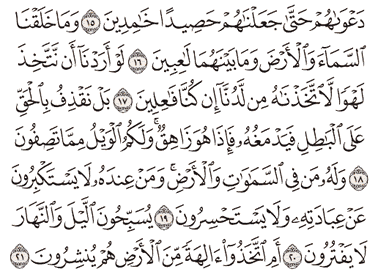 دَعْوَىٰهُمْ حَتَّىٰ جَعَلْنَٰهُمْ حَصِيدًا خَٰمِدِينَ ١٥ وَمَا خَلَقْنَا
ٱلسَّمَآءَ وَٱلْأَرْضَ وَمَا بَيْنَهُمَا لَٰعِبِينَ ١٦ لَوْ أَرَدْنَآ أَن نَّتَّخِذَ
لَهْوًا لَّٱتَّخَذْنَٰهُ مِن لَّدُنَّآ إِن كُنَّا فَٰعِلِينَ ١٧ بَلْ نَقْذِفُ بِٱلْحَقِّ
عَلَى ٱلْبَٰطِلِ فَيَدْمَغُهُۥ فَإِذَا هُوَ زَاهِقٌۚ وَلَكُمُ ٱلْوَيْلُ مِمَّا تَصِفُونَ
١٨ وَلَهُۥ مَن فِى ٱلسَّمَٰوَٰتِ وَٱلْأَرْضِۚ وَمَنْ عِندَهُۥ لَا يَسْتَكْبِرُونَ
عَنْ عِبَادَتِهِۦ وَلَا يَسْتَحْسِرُونَ ١٩ يُسَبِّحُونَ ٱلَّيْلَ وَٱلنَّهَارَ
لَا يَفْتُرُونَ ٢٠ أَمِ ٱتَّخَذُوٓا۟ ءَالِهَةً مِّنَ ٱلْأَرْضِ هُمْ يُنشِرُونَ ٢١